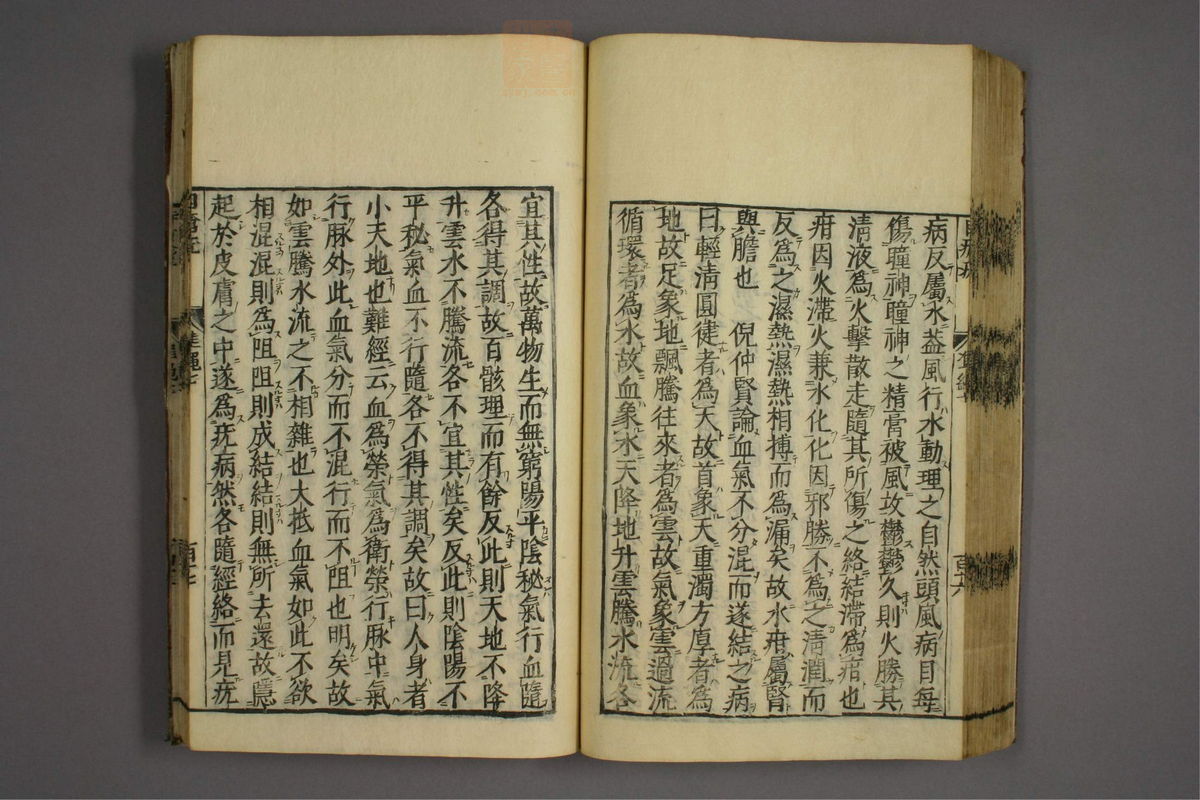 病反屬水蓋風行水動理之自然頭風病目每
傷瞳神瞳神之精膏被風攻鬱鬱久則火勝其
清液為火擊散走隨其所傷之絡結滯為疳也
疳因火滯火兼水化化因邪勝不為之清潤而
反為之濕熱濕熱相搏而為漏矣故水疳屬腎
與膽也　倪仲賢論血氣不分混而遂結之病
曰輕清圓健者為天故首象天重濁方厚者為
地故足象地飄騰往來者為雲故氣象雲過流
循環者為水故血象水天降地升雲騰水流各
宜其性故萬物生而無窮陽平陰秘氣行血隨
各得其調故百骸理而有餘反此則天地不降
升雲水不騰流各不宜其性矣反此則陰陽不
平秘氣血不行隨各不得其調矣故曰人身者
小天地也難經云血為榮氣為衛榮行脉中氣
行脉外此血氣分而不混行而不阻也明矣故
如雲騰水流之不相雜也大抵血氣如此不欲
相混混則為阻阻則成結結則無所去還故隱
起於皮膚之中遂為疣病然各隨經絡而見疣
百七